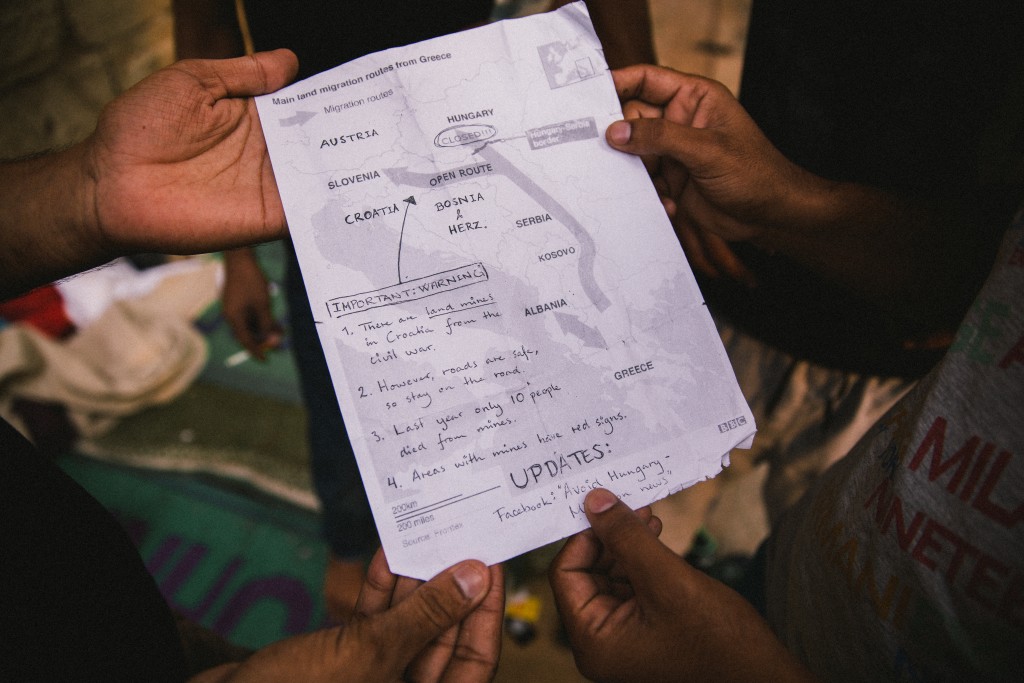 Main land migration routes from Greece
Migration routes
AUSTRIA
HUNGARY
CLOSED!!!
SLOVENIA
OPEN ROUTE
CROATIA
BOSNIA
&
HERZ.
SERBIA
KOSOVO
ALBANIA
GREECE
IMPORTANT: WARNING
1. There are land mines
in Croatia from the
civil war.
2. However, roads are safe,
so stay on the road.
3. Last year only 10 people
died from mines.
4. Areas with mines have red signs.
UPDATES:
Facebook: "Avoid Hungary -
news"
200km
200 miles
Source: Frontex
BBC
MIL
NNETE